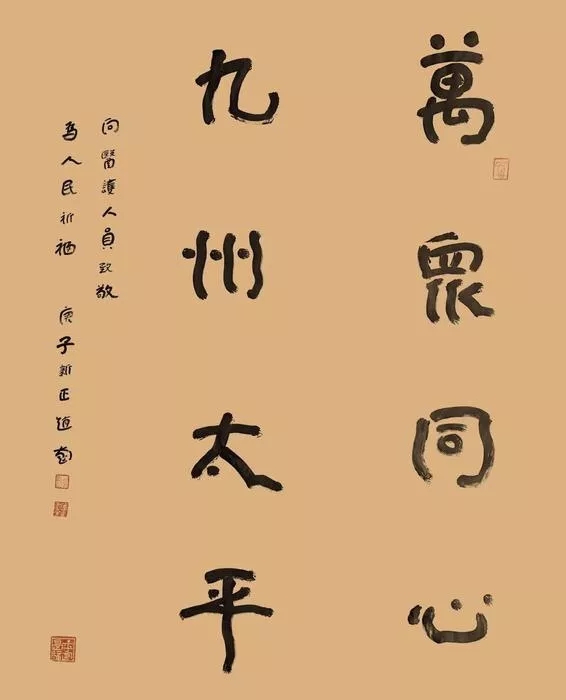 萬眾同心
九州太平
向醫護人員致敬
為人民祈福 庚子新正